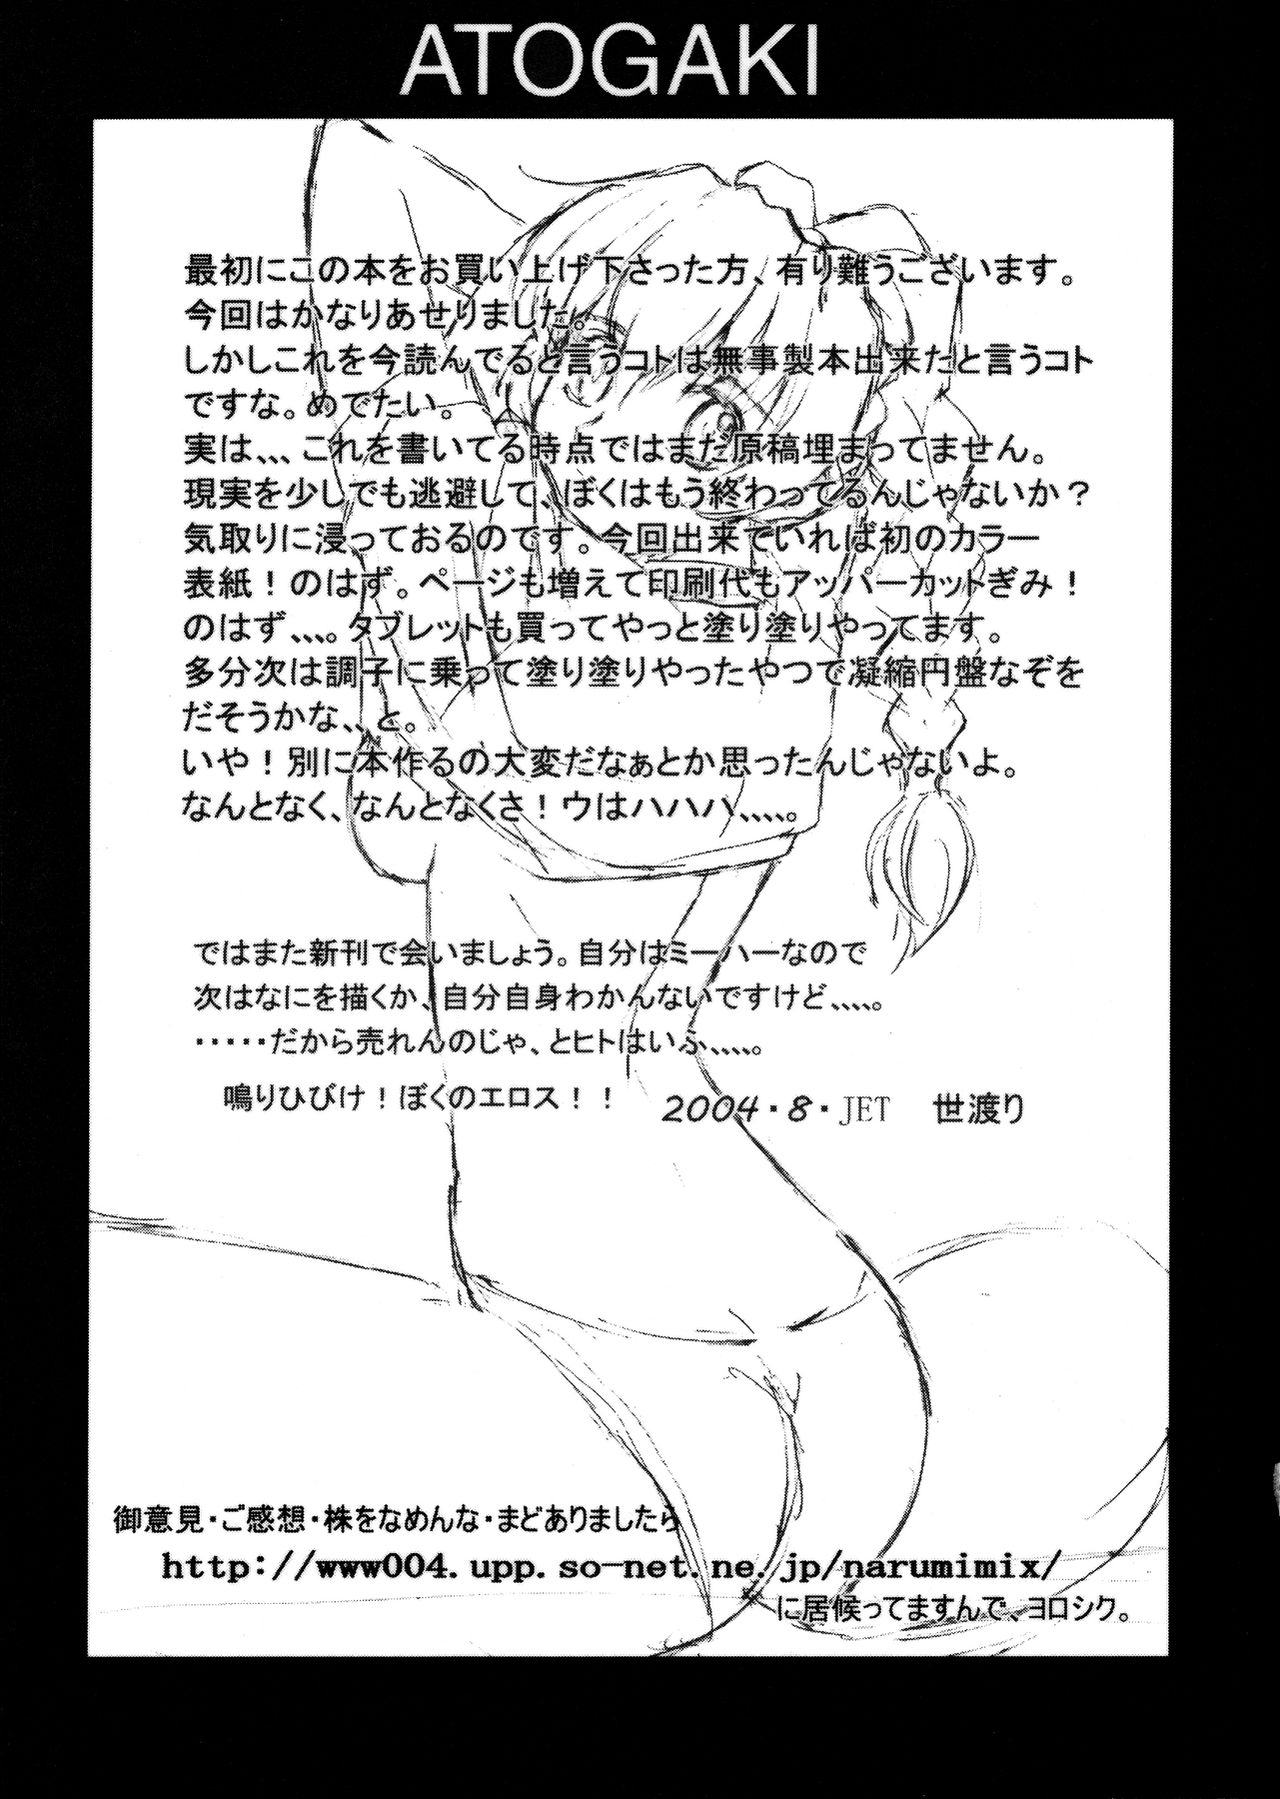 ATOGAKI
最初にこの本をお買い上げ下さった方、有り難うございます。
今回はかなりあせりました。
しかしこれを今読んでると言うコトは無事製本出来たと言うコト
ですな。めでたい。
実は、、、これを書いてる時点ではまだ原稿埋まってません。
現実を少しでも逃避して、ぼくはもう終わってるんじゃないか？
気取りに浸っておるのです。今回出来ていれば初のカラー
表紙！のはず。ページも増えて印刷代もアッパーカットぎみ！
のはず、、、。タブレットも買ってやっと塗り塗りやってます。
多分次は調子に乗って塗り塗りやったやつで凝縮円盤なぞを
だそうかな、、と。
いや！別に本作るの大変だなぁとか思ったんじゃないよ。
なんとなく、なんとなくさ！ウはハハハ、、、、。
ではまた新刊で会いましょう。自分はミーハーなので
次はなにを描くか、自分自身わかんないですけど、、、、。
・・・・・だから売れんのじゃ、とヒトはいふ、、、、。
鳴りひびけ！ぼくのエロス！！
2004・8・JET　世渡り
御意見・ご感想・株をなめんな・まどありましたら
http://www004.upp.so-net.ne.jp/narumimix/
に居候ってますんで、ヨロシク。